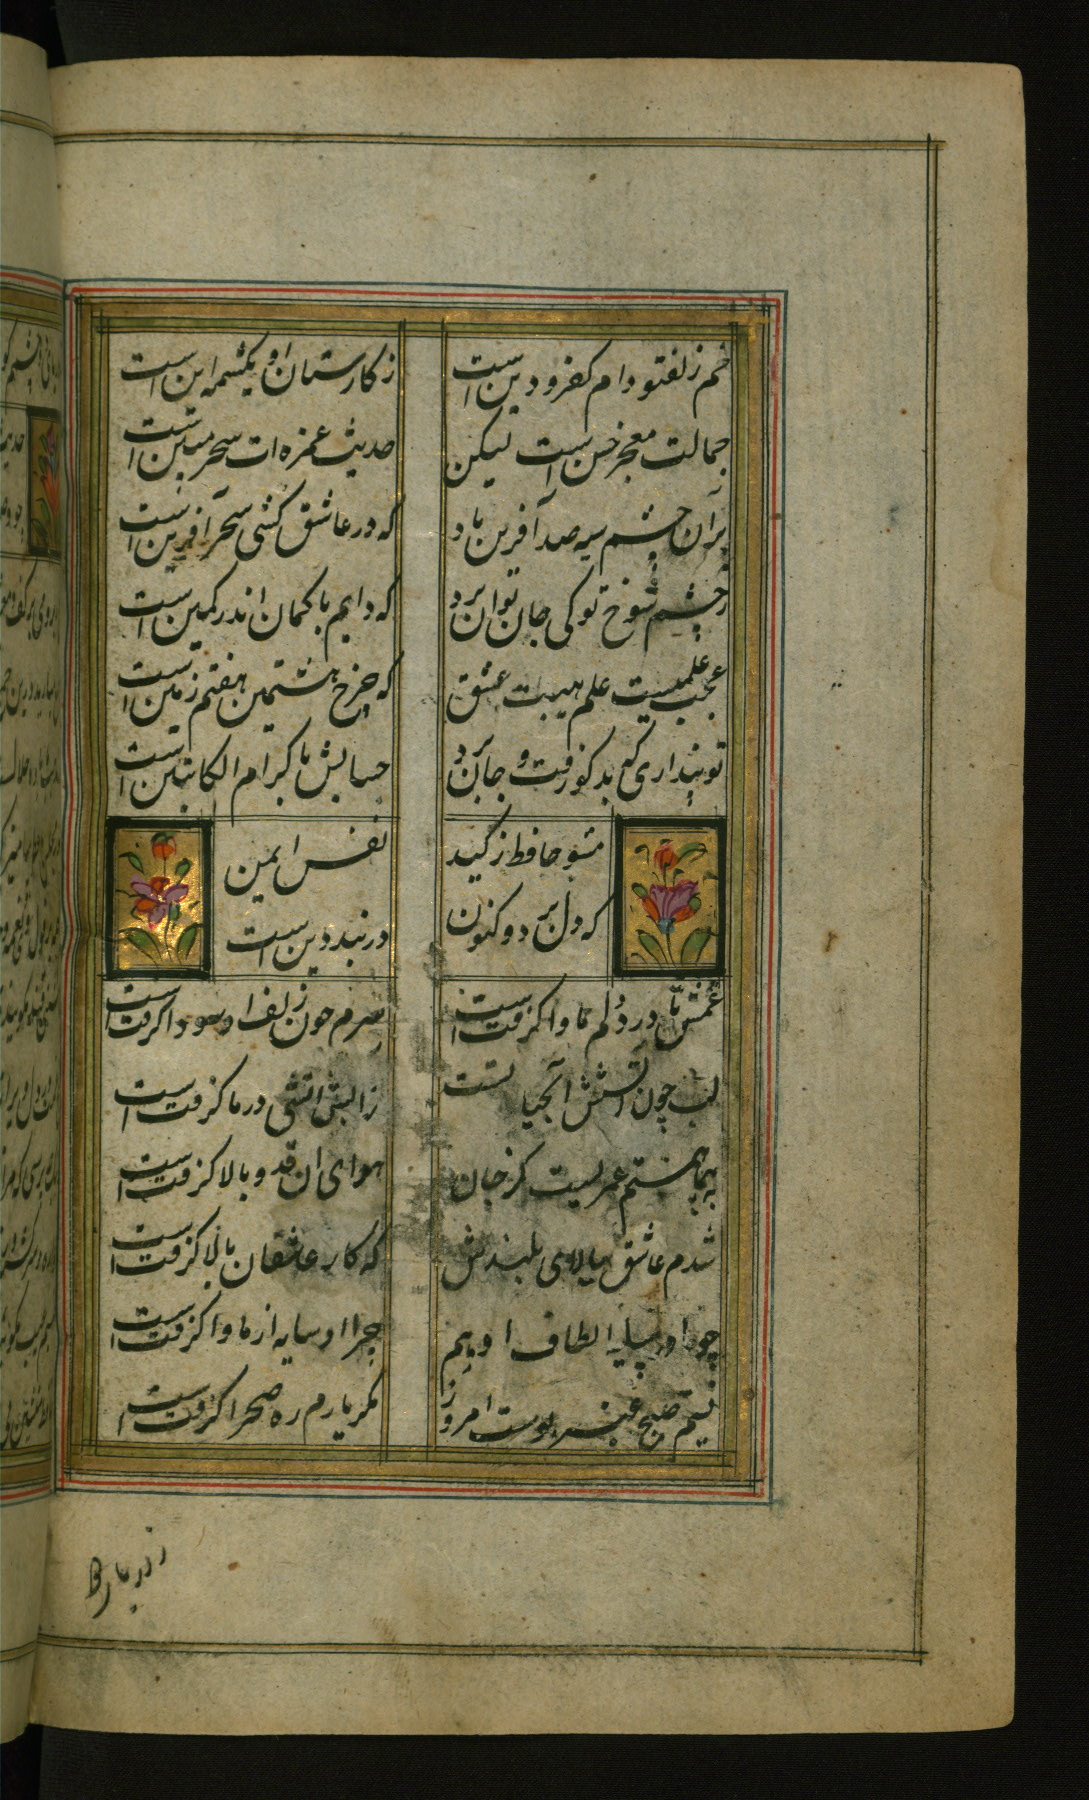 خم زلفتو دام کفر و دین است
ز کارستان او یکشمه این است
جمالت معجز حسن است لیکن
حدیث غمزه ات سحر مبین است
بر آن چشم سیه صد آفرین باد
که در عاشق کشی سحر آفرین است
ز چشم شوخ تو کی جان توان برد
که دایم با کمان اندر کمین است
عجب علمیست علم هیبت عشق
که چرخ هشتمین هفتم زمین است
تو پنداری که بدکو رفت و جان برد
حسابش با کرام الکاتبین است
مشو حافظ ز کید
نفس ایمن
که دل برد و کنون
در بند دین است
غمش تا در دلم ماوا کرفت است
سرم چون زلف او سودا کرفت است
لب چون آتشش آبحیا تست
ز آبش آتشی در ما کرفت است
همای همتم عمریست کز جان
هوای آن قد و بالا کرفت است
شدم عاشق ببالای بلندش
که کار عاشقان بالا کرفت است
چو ما در سایه الطاف اویم
چرا او سایه از ما وا کرفت است
نسیم صبح عنبر بوست امروز
مکر یارم ره صحرا کرفت است